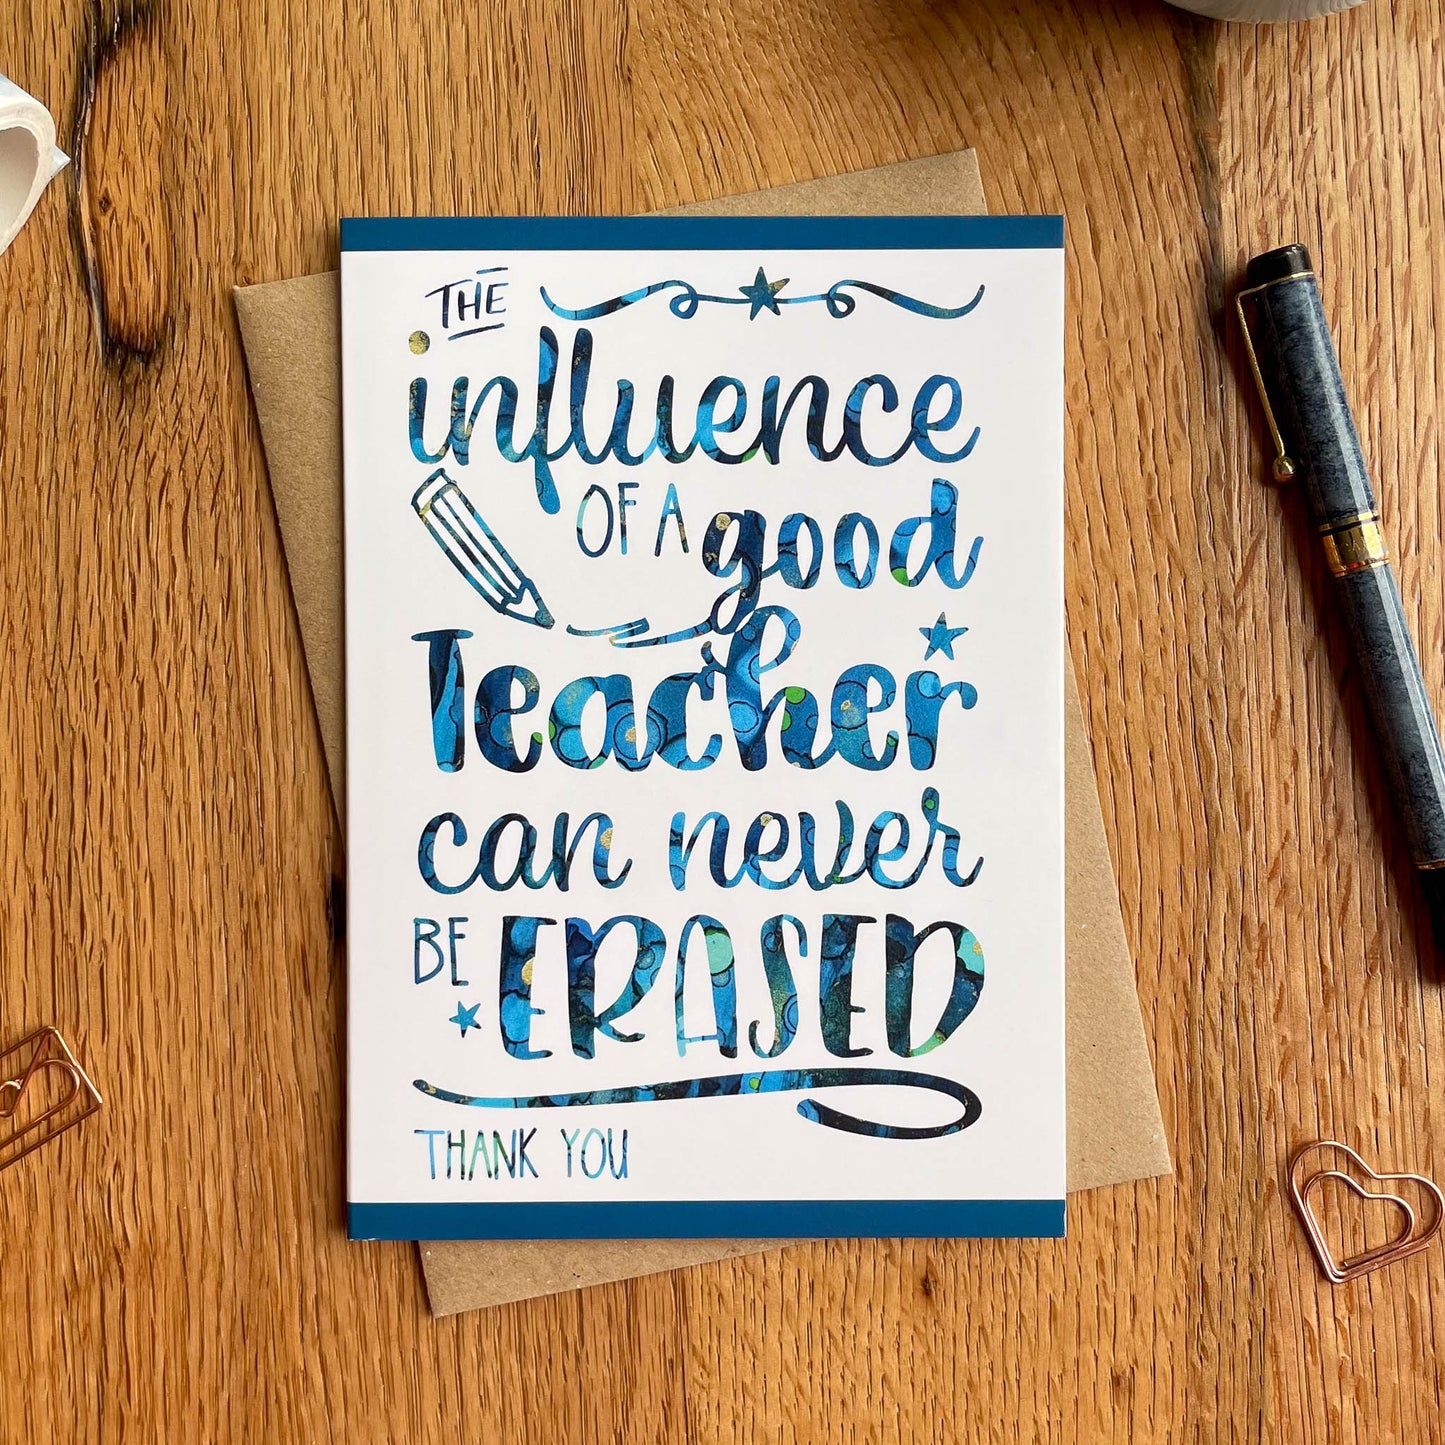 THE
influence
OF A good
Teacher
can never
BE ERASED
THANK YOU